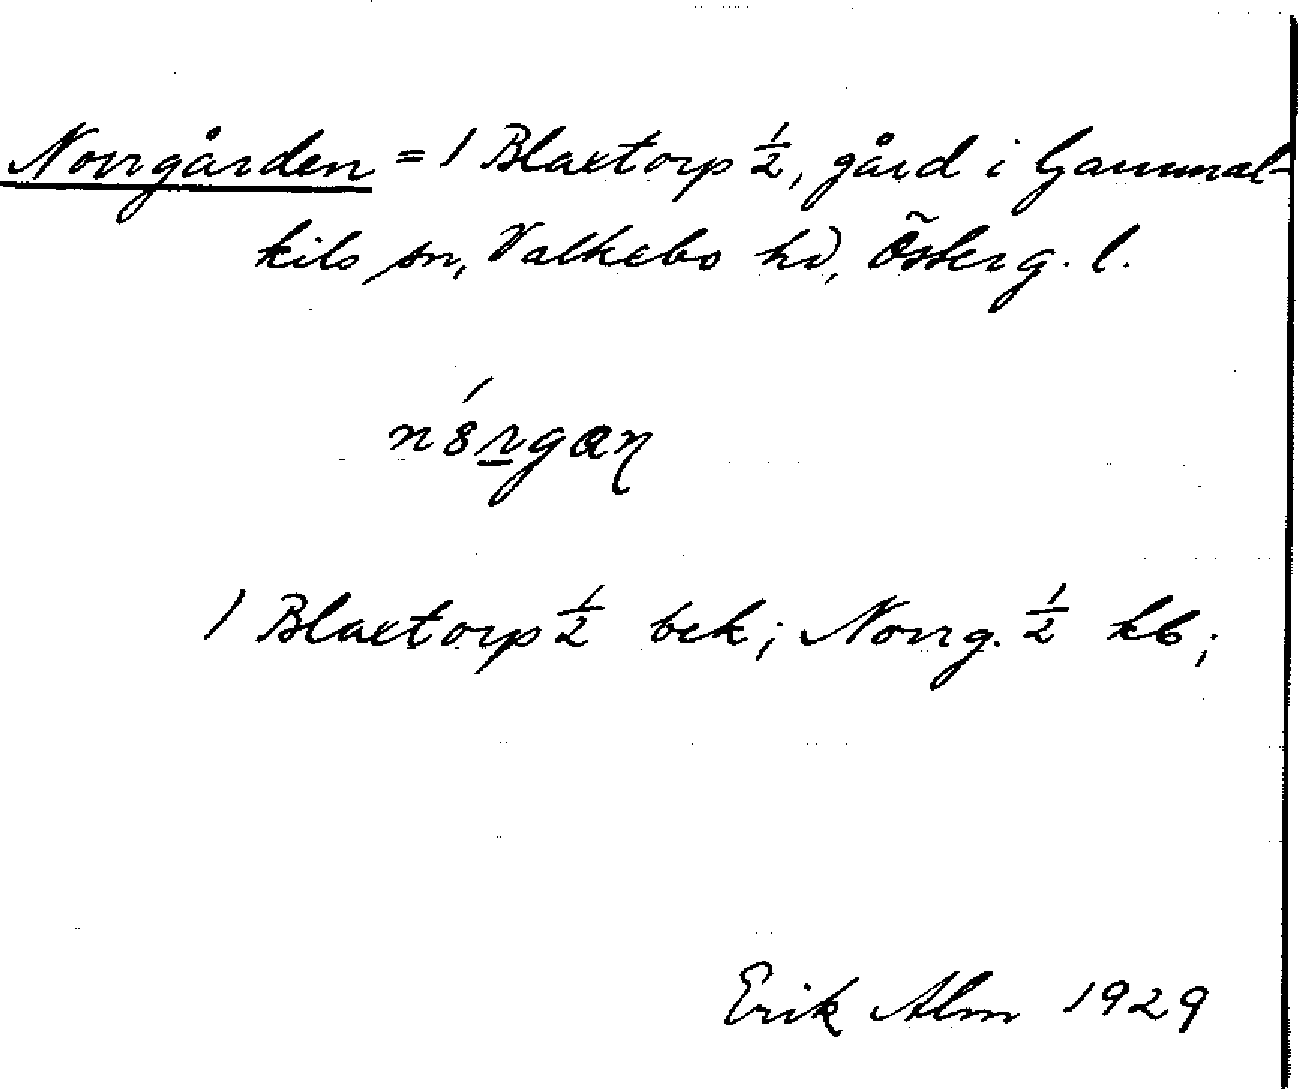 Norrgården = 1 Blaxtorp ½, gård i Gammal-
kils sn, Valkebo hd, Österg. l.
nórgan
1 Blaxtorp ½ bek; Norrg. ½ kb;
Erik Alm 1929